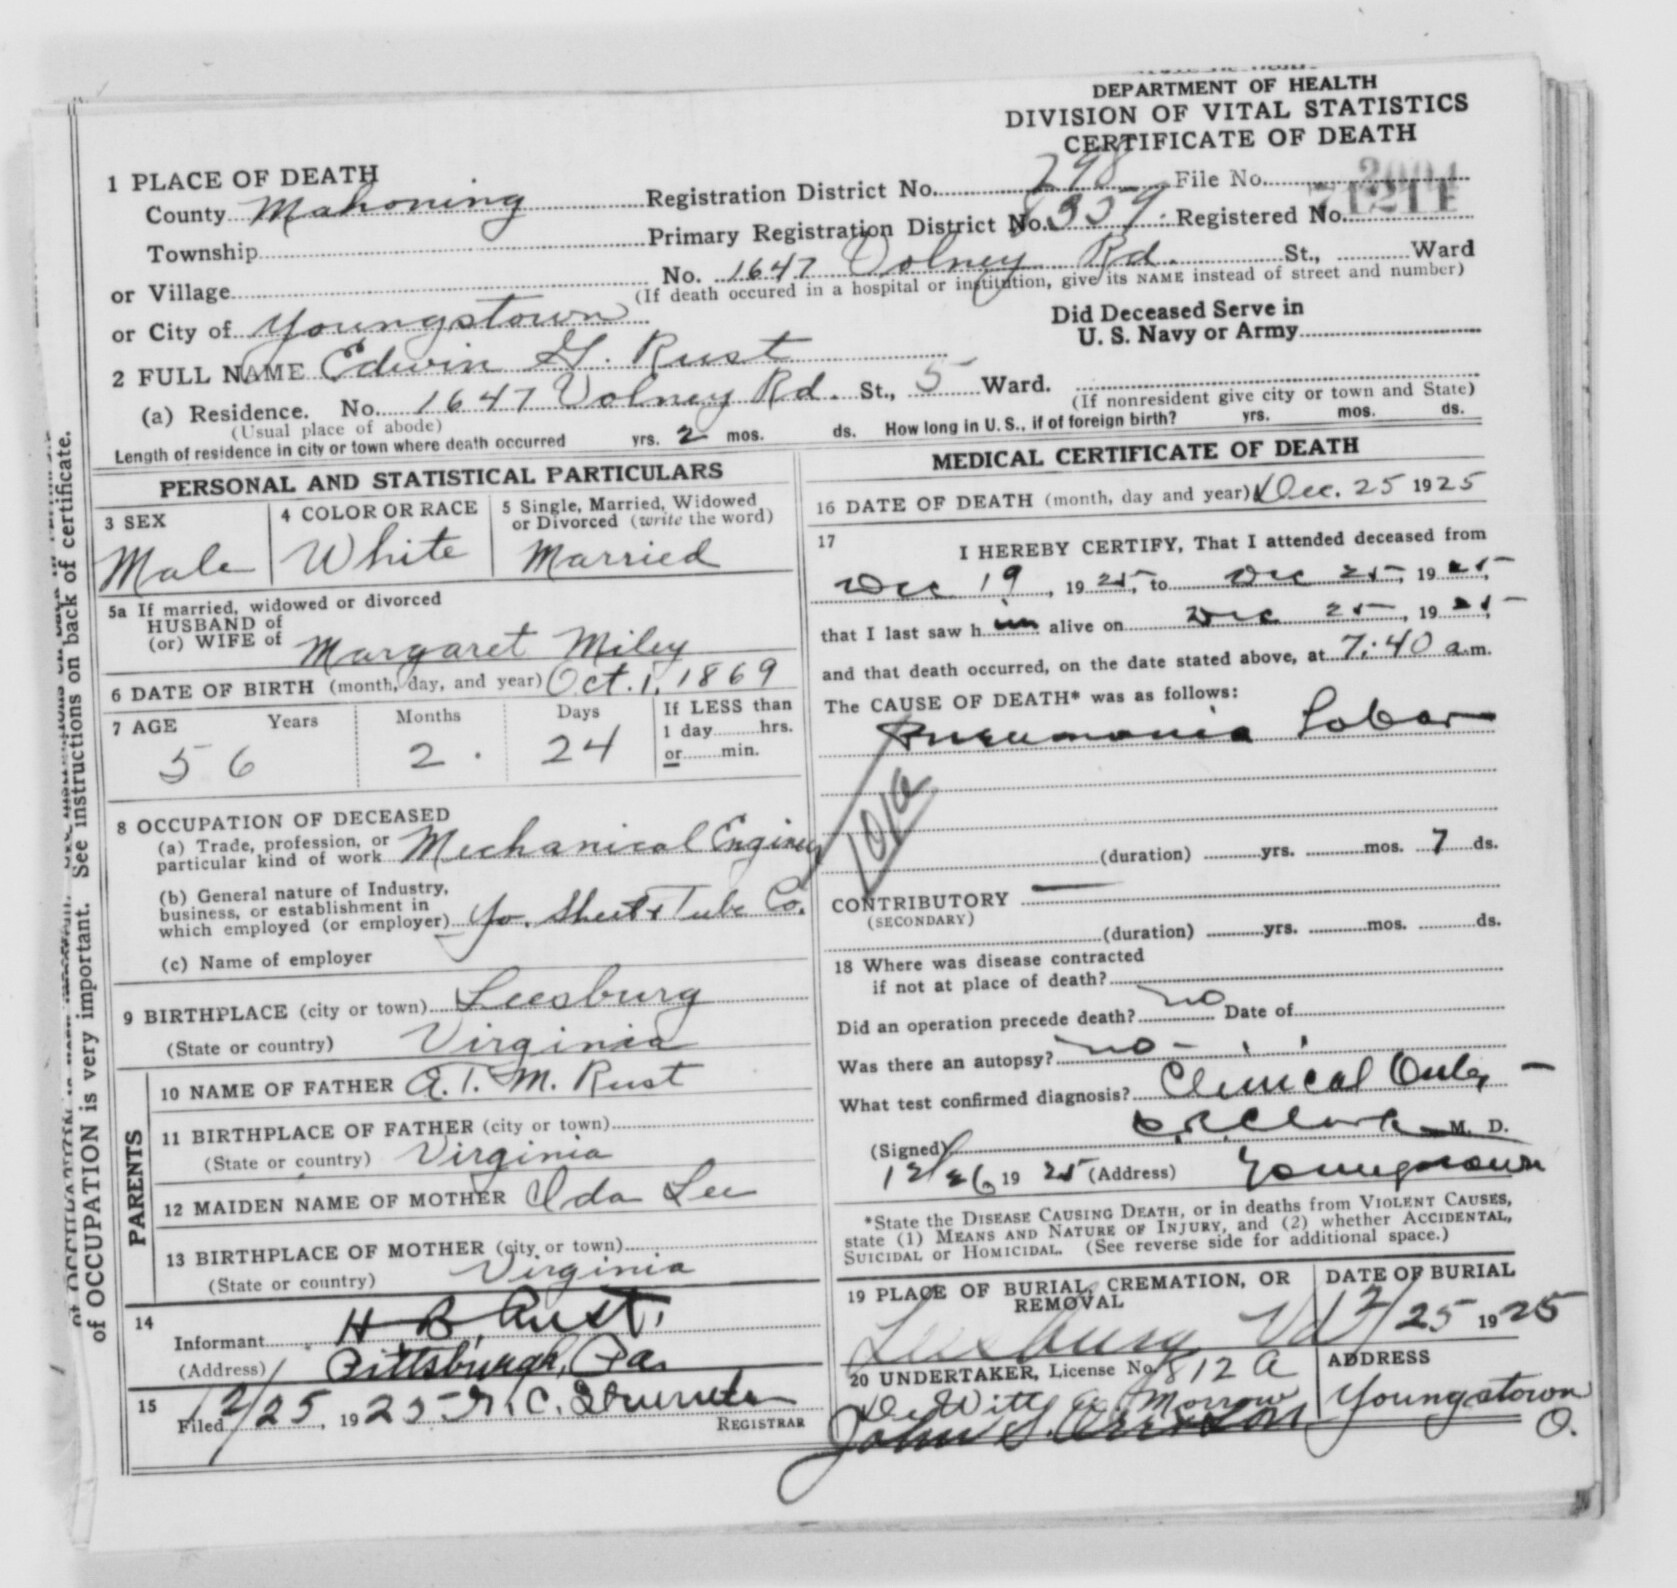 DEPARTMENT OF HEALTH
DIVISION OF VITAL STATISTICS
CERTIFICATE OF DEATH
1 PLACE OF DEATH
County Mahoning Registration District No. 798 File No.
Township Primary Registration District No. 8359 Registered No. 71211
or Village No. 1647 Volney Rd. St., Ward
(If death occured in a hospital or institution, give its NAME instead of street and number)
or City of Youngstown
Did Deceased Serve in
U. S. Navy or Army
2 FULL NAME Edwin G. Rust
(a) Residence. No. 1647 Volney Rd. St., 5 Ward.
(Usual place of abode) (If nonresident give city or town and State)
Length of residence in city or town where death occurred yrs. 2 mos. ds. How long in U. S., if of foreign birth? yrs. mos. ds.
PERSONAL AND STATISTICAL PARTICULARS
3 SEX
Male
4 COLOR OR RACE
White
5 Single, Married, Widowed
or Divorced (write the word)
Married
5a If married, widowed or divorced
HUSBAND of
(or) WIFE of Margaret Miley
6 DATE OF BIRTH (month, day, and year) Oct. 1, 1869
7 AGE Years Months Days If LESS than
1 day hrs.
or min.
56 2 . 24
8 OCCUPATION OF DECEASED
(a) Trade, profession, or
particular kind of work Mechanical Engineer
(b) General nature of Industry,
business, or establishment in
which employed (or employer) Yo. Sheet & Tube Co.
(c) Name of employer
9 BIRTHPLACE (city or town) Leesburg
(State or country) Virginia
PARENTS
10 NAME OF FATHER A. T. M. Rust
11 BIRTHPLACE OF FATHER (city or town)
(State or country) Virginia
12 MAIDEN NAME OF MOTHER Ida Lee
13 BIRTHPLACE OF MOTHER (city or town)
(State or country) Virginia
14
Informant H. B. Rust.
(Address) Pittsburgh, Pa.
15
Filed 12/25, 1925 REGISTRAR
MEDICAL CERTIFICATE OF DEATH
16 DATE OF DEATH (month, day and year) Dec. 25 1925
17
I HEREBY CERTIFY, That I attended deceased from
Dec 19, 1925, to Dec 25, 1925,
that I last saw him alive on Dec 25, 1925,
and that death occurred, on the date stated above, at 7:40 a.m.
The CAUSE OF DEATH* was as follows:
Pneumonia Lobar
101a
(duration) yrs. mos. 7 ds.
CONTRIBUTORY —
(SECONDARY)
(duration) yrs. mos. ds.
18 Where was disease contracted
if not at place of death?
Did an operation precede death? no Date of
Was there an autopsy? no -
What test confirmed diagnosis? Clinical Only -
(Signed) C.R. Clark M. D.
12/26 1925 (Address) Youngstown
*State the DISEASE CAUSING DEATH, or in deaths from VIOLENT CAUSES,
state (1) MEANS AND NATURE OF INJURY, and (2) whether ACCIDENTAL,
SUICIDAL or HOMICIDAL. (See reverse side for additional space.)
19 PLACE OF BURIAL, CREMATION, OR
REMOVAL
Leesburg Va
DATE OF BURIAL
12/25 1925
20 UNDERTAKER, License No. 812 A
De Witt A. Morrow
ADDRESS
Youngstown
O.
of OCCUPATION is very important. See instructions on back of certificate.